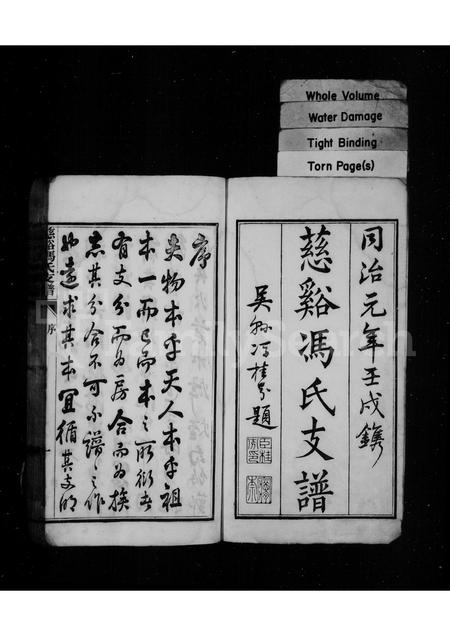 Whole Volume
Water Damage
Tight Binding
Torn Page(s)
同治元年壬戌鐫
慈谿馮氏支譜
吳縣馮桂芬題
序
夫物本乎天人本乎祖
本一而已而本之所衍也
有支分而為房合而為族
志其分合不可不譜譜之作
也遠求其本宜循其支明
慈谿馮氏支譜
序
FamilySearch